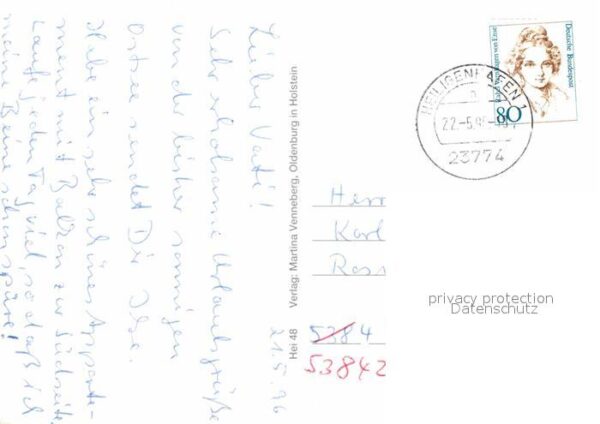 21.5.96
Lieber Vati!
Sehr erholsame Urlaubsgrüße
von der bisher sonnigen
Ostsee sendet Dir Ilse.
Habe ein sehr schönes Apparte-
ment mit Balkon zur Südseite.
Lauf jeden Tag viel, sodaß ich
meine Beine schon spüre!
Hei 48 Verlag: Martina Venneberg, Oldenburg in Holstein
Deutsche Bundespost
80
HEILIGENHAFEN 1
22.-5.96
23774
Herr
Karl
5384
53842
privacy protection
Datenschutz